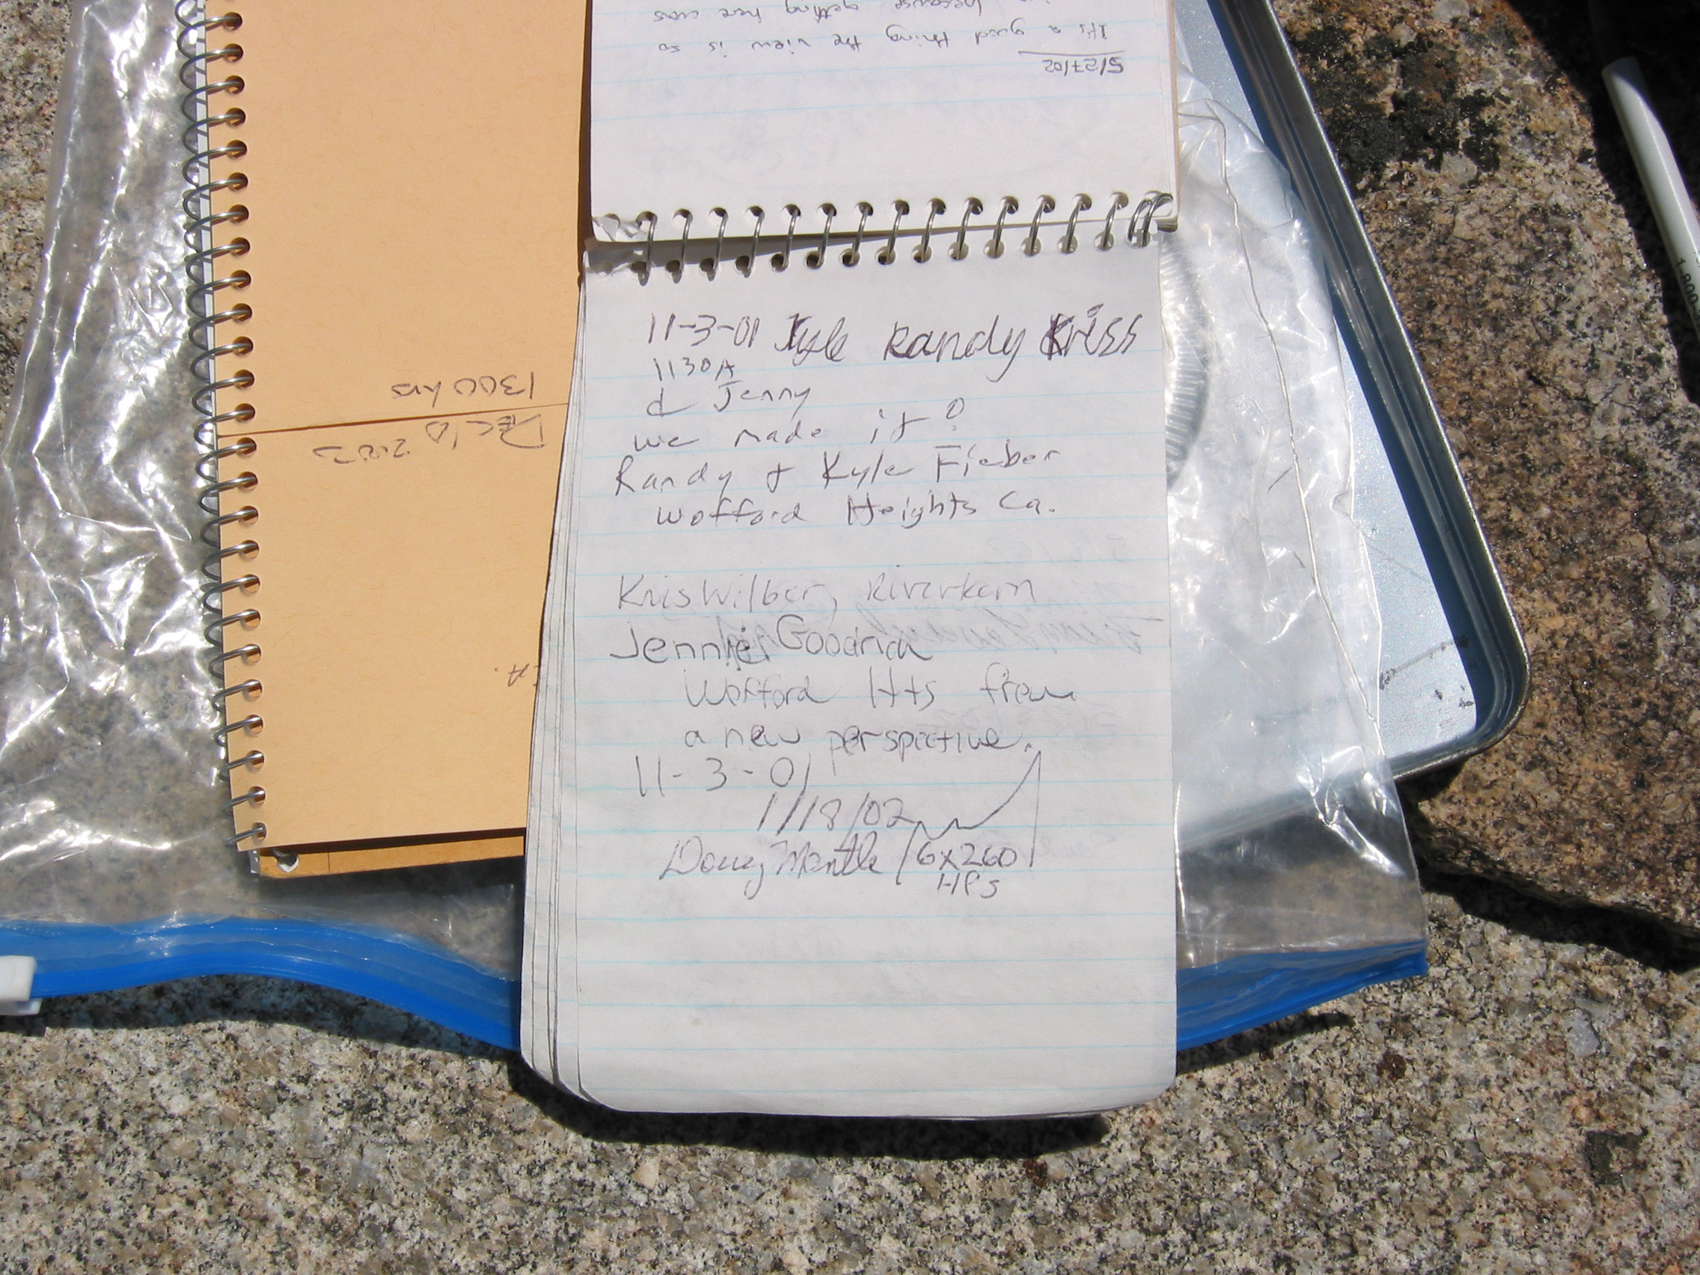 5/27/02
It's a good thing the view is so
because getting here was
1300 hrs
Dec 10 2003
11-3-01 Kyle Randy Kriss
1130A
d Jenny
we made it
Randy & Kyle Fieber
Wofford Heights Ca.
Kris Wilber, Riverkern
Jennie
Wofford Hts from
a new perspective.
11-3-01
1/18/02
Doug Mantle 6x260
HPs